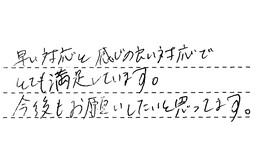 早い対応と感じの良い対応で
とても満足しています。
今後もお願いしたいと思ってます。